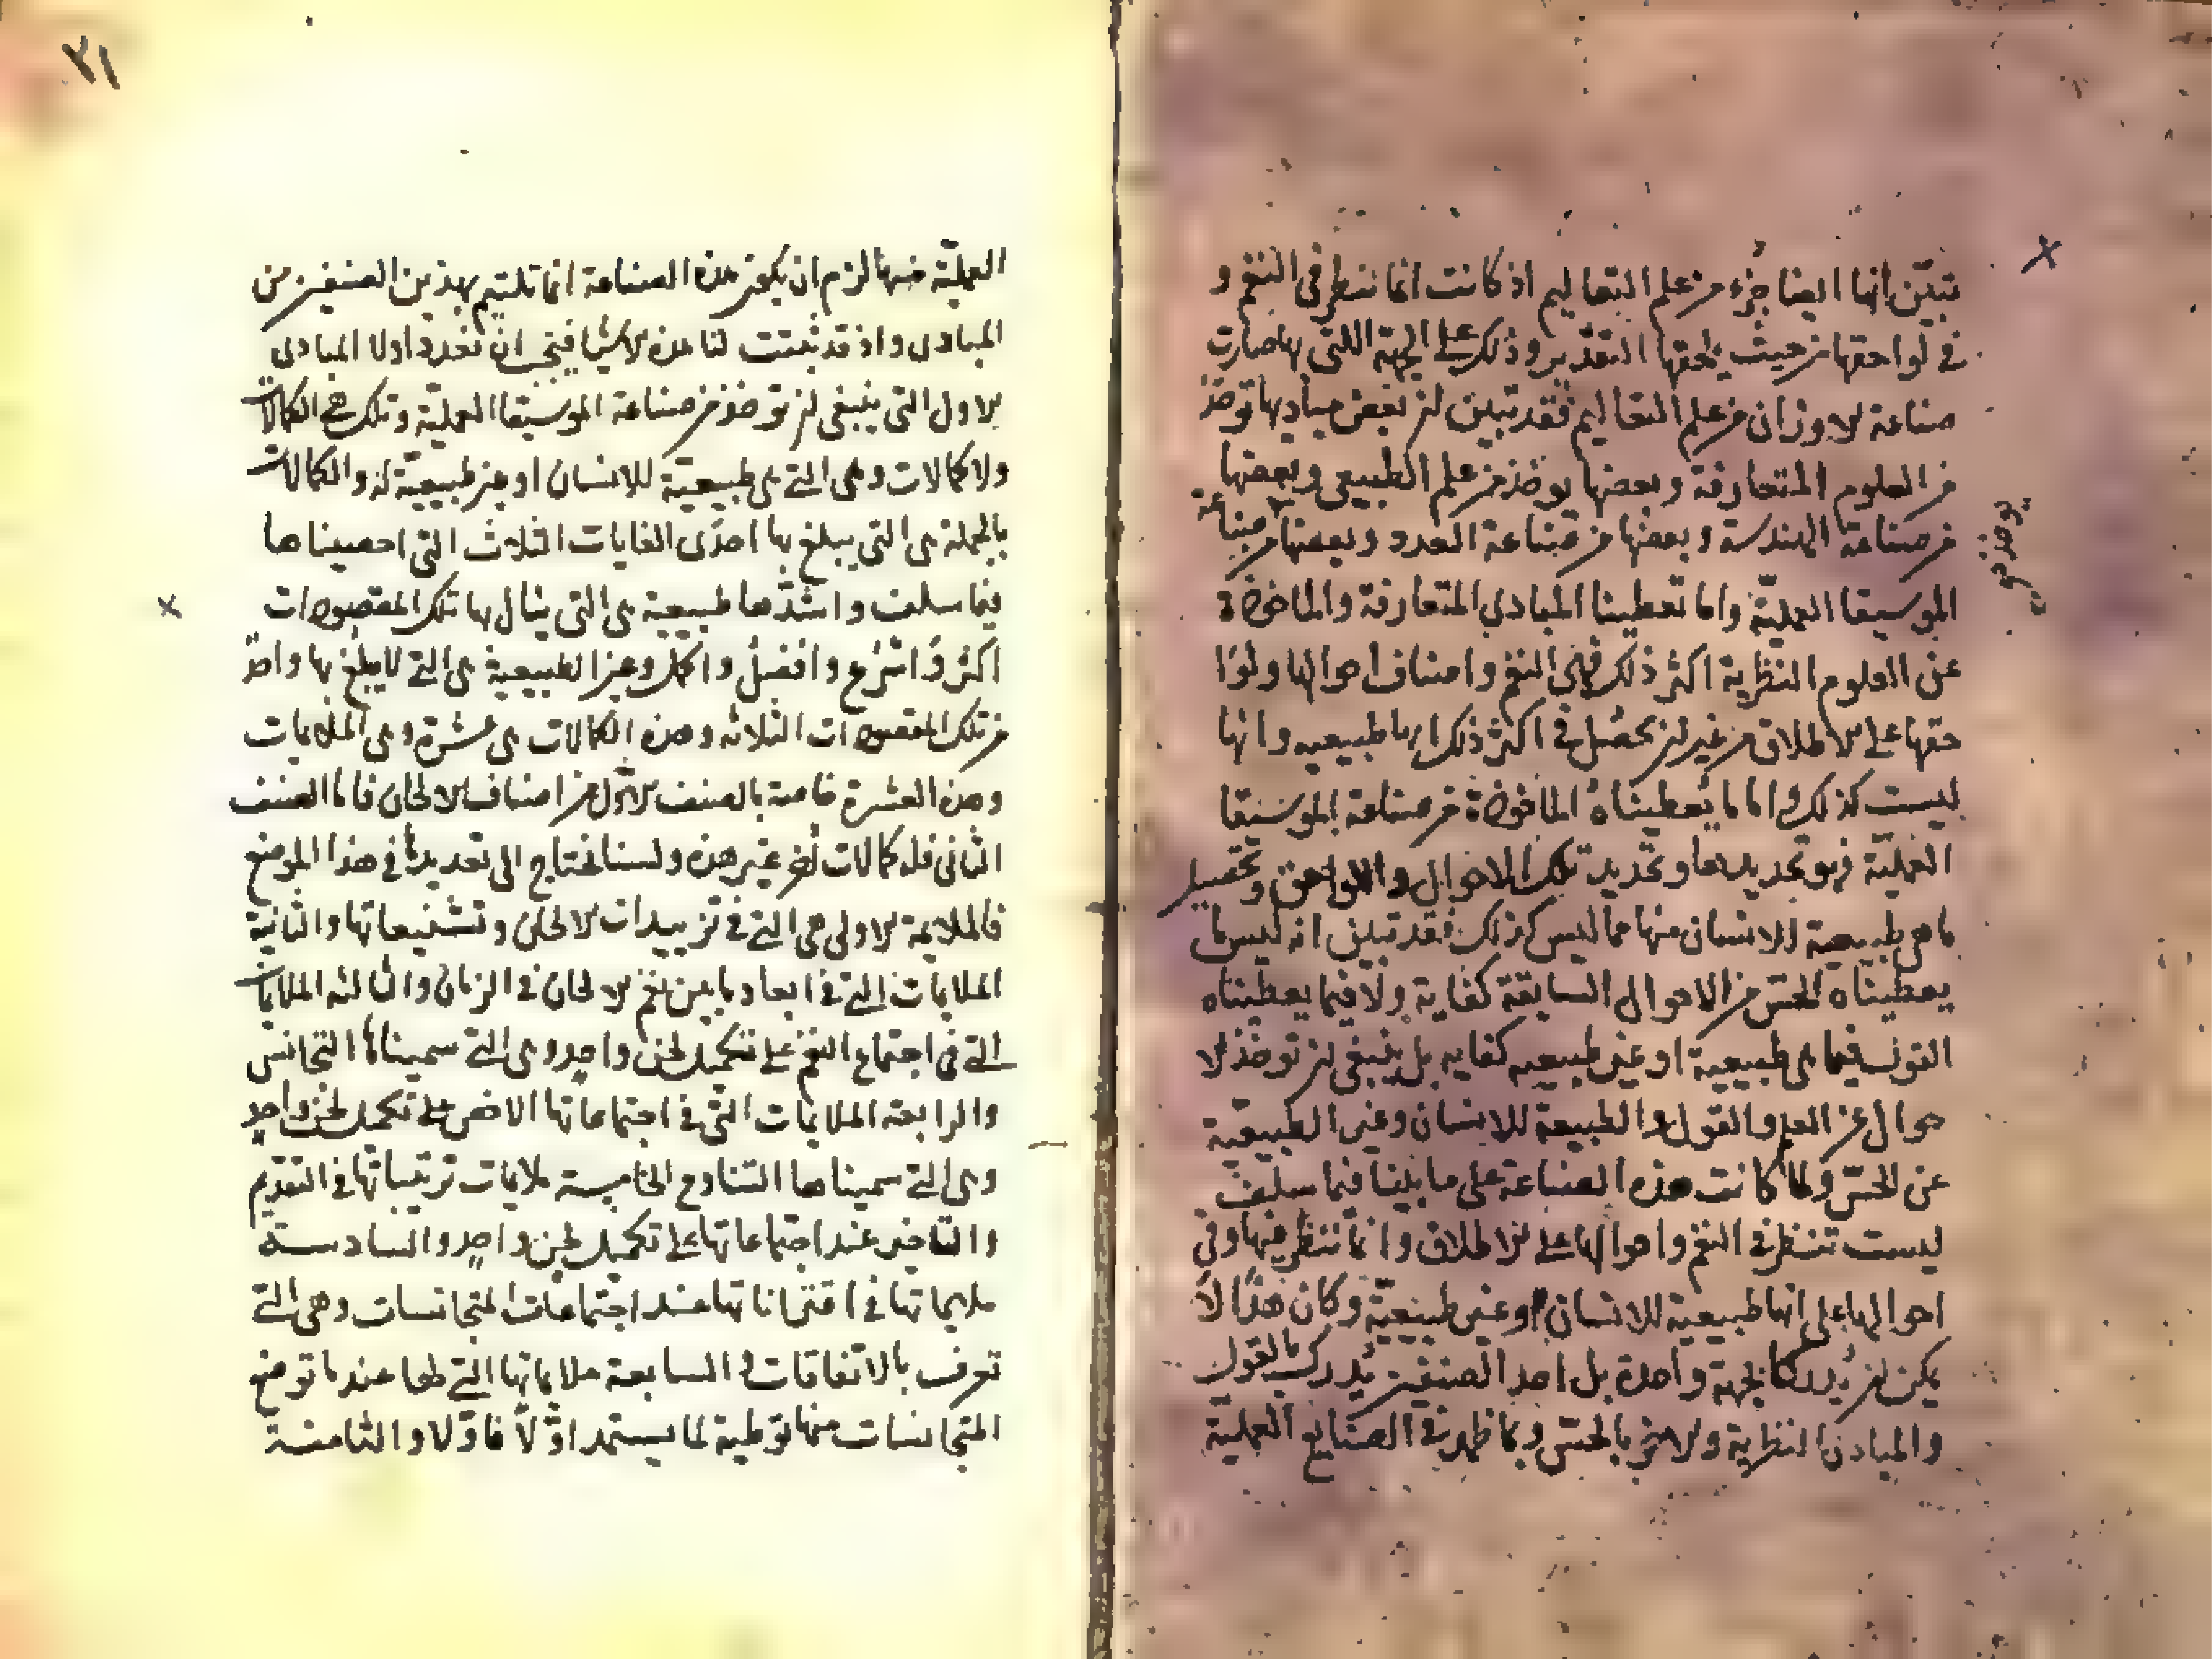 تبيّن انها ايضا جُزء من علم التعاليم اذ كانت انما تنظر في النغم و
في لواحقها من حيث يلحقها التقدير وذلك على الجهة اللتي بها صارت
صناعة الاوزان من علم التعاليم فقد تبين ان بعض مباديها توخذ
من العلوم المتعارفة وبعضها يوخذ من علم الطبيعي وبعضها
من صناعة الهندسة وبعضها من صناعة العدد وبعضها من صناعة
يوخذ من
الموسيقا العمليّة واما تعطينا المبادي المتعارفة والماخوذة
عن العلوم النظرية اكثر ذلك فهي النغم واصناف احوالها ولوا
حقها على الاطلاق من غير ان يحصّل في اكثر ذلك ايها طبيعيه وانها
ليست كذلك واما ما يُعطيناهُ الماخوذة من صناعة الموسيقا
العمليّة فهو تحديدها وتحديد تلك الاحوال واللواحق وتحصيل
ما هي طبيعية للانسان منها مما ليس كذلك فقد تبين انه ليس ما
يعطيناه الحسّ من الاحوال السابقة كفاية ولا فيما يعطيناه
القول فيما هي طبيعية او غير طبيعيه كفايه بل ينبغي ان توخذ الا
حوال عن العلم والقول والطبيعة للانسان وغير الطبيعيّة
عن الحسّ ولما كانت هذه الصناعة على ما بينا فيما سلف
ليست تنظر في النغم واحوالها على الاطلاق وانما تنظر فيها وفي
احوالها على انها طبيعية للانسان او غير طبيعيّة وكان هذا لا
يمكن ان يُدرك بجهة واحدة بل احد الصنفين يُدرك بالقول
والمبادى النظرية والاخر بالحسّ وبما ظهر في الصنايع العمليّة
٣١
العمليّة منها لزم ان يكون هذه الصناعة انما تلتيم بهذين الصنفين من
المبادى واذ قد تبينت لنا هذه الاشيا فينبغي ان نعدد اولا المبادى
الاول التي ينبغي ان توخذ من صناعة الموسيقا العمليّة وتلك هي الكمالات
ولا كمالات وهي التي هي طبيعيّة للانسان او غير طبيعيّة له والكمالات
بالجملة هي التي يبلغ بها احدى الغايات الثلاث التي احصيناها
فيما سلف واشدّها طبيعية هي التي ينال بها تلك المقصودات
اكثر واشرع وافضل واكمل وغير الطبيعية هي التي لا يبلغ بها واحد
من تلك المقصودات الثلاثه وهذه الكمالات هي عشرة وهي الملايمات
وهذه العشرة خاصة بالصنف الاول من اصناف الالحان فاما الصنف
الثاني فله كمالات اُخر غير هذه ولسنا نحتاج الى تعديدها في هذا الموضع
فالملايمة الاولى هي التي في تزييدات الالحان وتشنيعاتها والثانية
الملايمات التي في ابعاد ما بين نغم الالحان في الزمان والثالثه الملايمات
التي في اجتماع النغم على تكميل لحن واحد وهي التي سميناها التجانس
والرابعة الملايمات التي في اجتماعاتها الاخص على تكميل لحن واحد
وهي التي سميناها التنادع الخامسة ملايمات ترتيباتها في التقديم
والتاخير عند اجتماعاتها على تكميل لحن واحد والسادسة
ملايماتها في اقتراناتها عند اجتماعات المتجانسات وهي التي
تعرف بالاتفاقات والسابعة ملايماتها التي لها عندما توضع
المتجانسات منها توطية لما يستمد اوّلا فاوّلا والثامنة